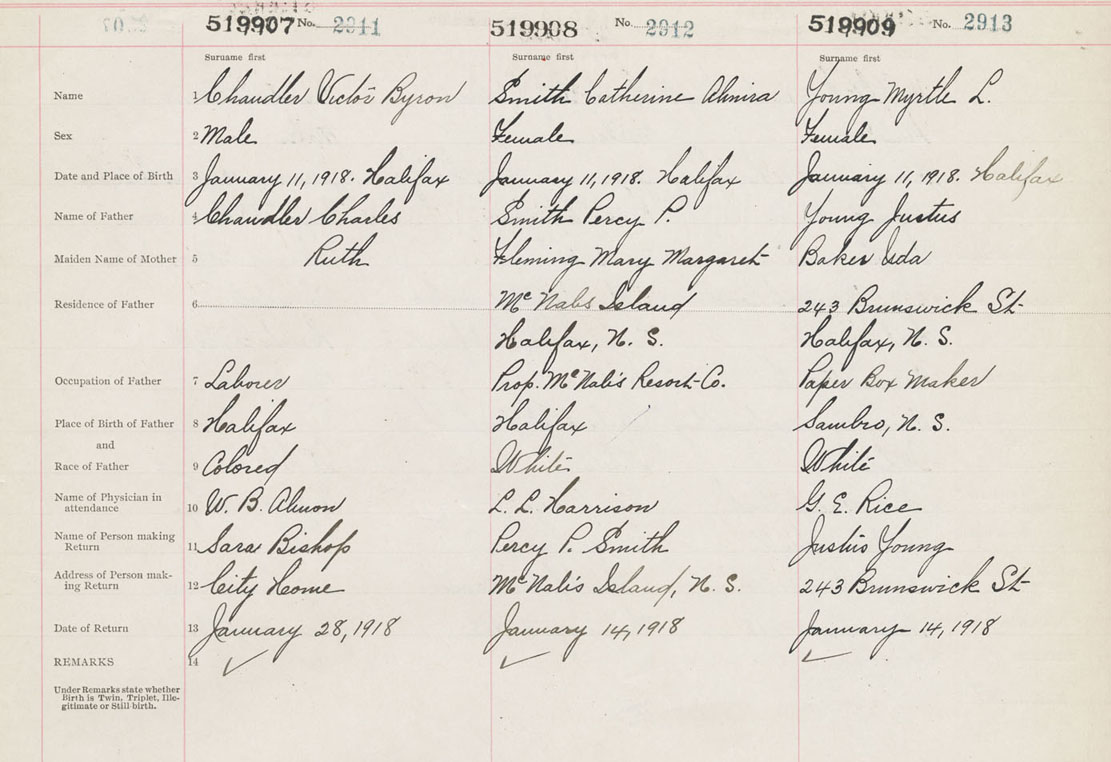 519907 No. 2911 519908 No. 2912 519909 No. 2913
Surname first Surname first Surname first
Name 1 Chandler Victor Byron Smith Catherine Almira Young Myrtle L.
Sex 2 Male Female Female
Date and Place of Birth 3 January 11, 1918. Halifax January 11, 1918. Halifax January 11, 1918. Halifax
Name of Father 4 Chandler Charles Smith Percy P. Young Justus
Maiden Name of Mother 5 Ruth Fleming Mary Margaret Baker Ida
Residence of Father 6 McNabs Island 243 Brunswick St
Halifax, N. S. Halifax, N. S.
Occupation of Father 7 Laborer Prop. McNab's Resort Co. Paper Box Maker
Place of Birth of Father 8 Halifax Halifax Sambro, N. S.
and
Race of Father 9 Colored White White
Name of Physician in
attendance 10 W. B. Almon L. L. Harrison G. E. Rice
Name of Person making
Return 11 Sara Bishop Percy P. Smith Justus Young
Address of Person mak-
ing Return 12 City Home McNab's Island, N. S. 243 Brunswick St
Date of Return 13 January 28, 1918 January 14, 1918 January 14, 1918
REMARKS 14
Under Remarks state whether
Birth is Twin, Triplet, Ille-
gitimate or Still-birth.